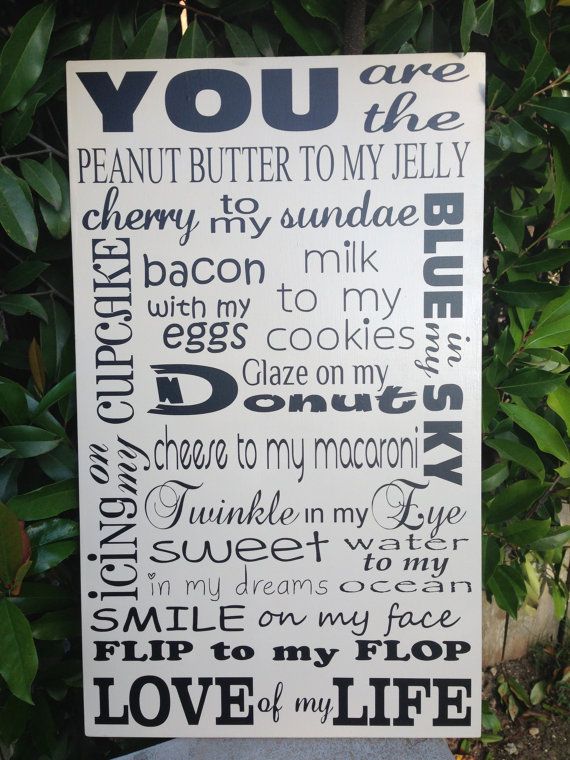 YOU are the
PEANUT BUTTER TO MY JELLY
cherry to my sundae
BLUE in my SKY
icing on my CUPCAKE
bacon with my eggs
milk to my cookies
Glaze on my
Donut
cheese to my macaroni
Twinkle in my Eye
sweet in my dreams
water to my ocean
SMILE on my face
FLIP to my FLOP
LOVE of my LIFE